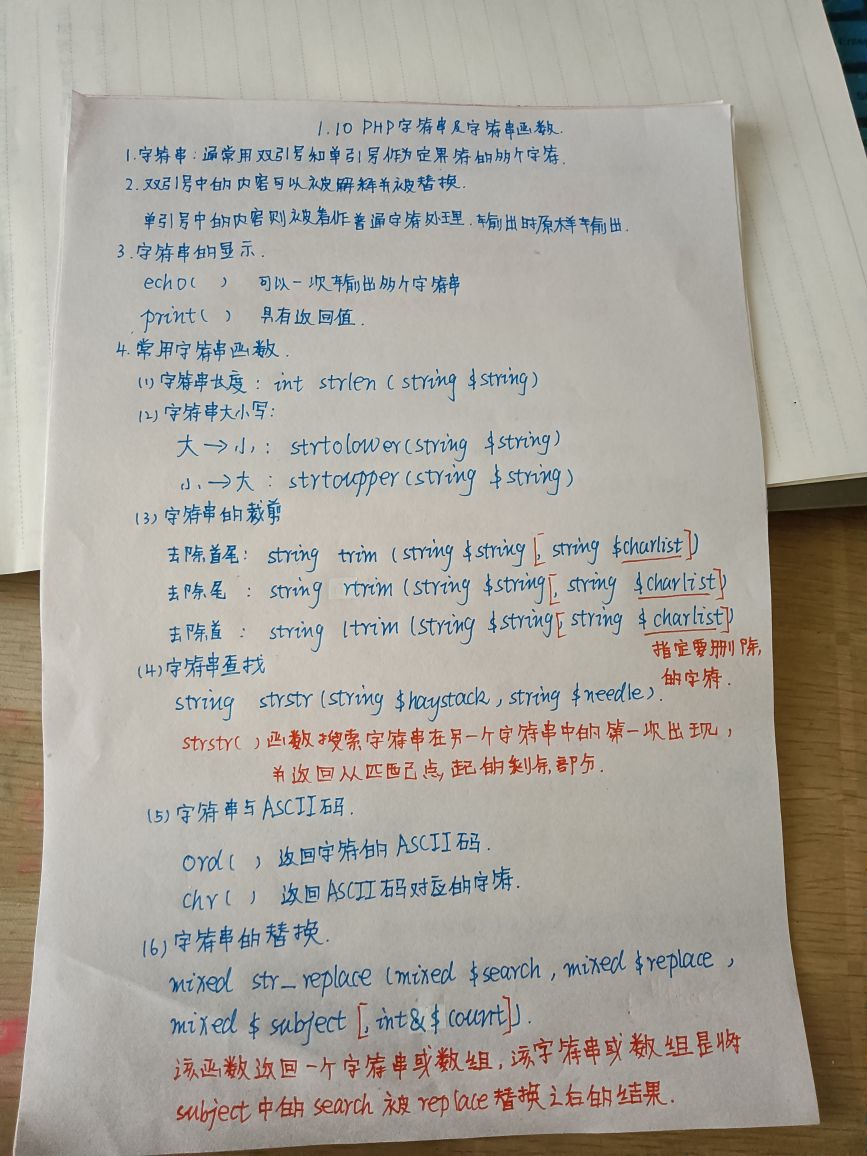 1.10 PHP字符串及字符串函数.
1.字符串:通常用双引号和单引号作为定界符的多个字符.
2.双引号中的内容可以被解释并被替换.
单引号中的内容则被看作普通字符处理.输出时原样输出.
3.字符串的显示.
echo( ) 可以一次输出多个字符串
print( ) 具有返回值.
4.常用字符串函数.
(1)字符串长度: int strlen (string $string)
(2)字符串大小写:
大→小: strtolower(string $string)
小→大: strtoupper(string $string)
(3)字符串的裁剪
去除首尾: string trim (string $string [, string $charlist])
去除尾 : string rtrim (string $string[, string $charlist])
去除首 : string ltrim (string $string[ string $charlist])
指定要删除,
的字符.
(4)字符串查找
string strstr (string $haystack, string $needle).
strstr( )函数搜索字符串在另一个字符串中的第一次出现,
并返回从匹配点起的剩余部分.
(5)字符串与ASCII码.
ord( ) 返回字符的ASCII码.
chr( ) 返回ASCII码对应的字符.
(6)字符串的替换.
mixed str_replace (mixed $search, mixed $replace,
mixed $subject [, int&$count]).
该函数返回一个字符串或数组,该字符串或数组是将
subject中的search被replace替换之后的结果.